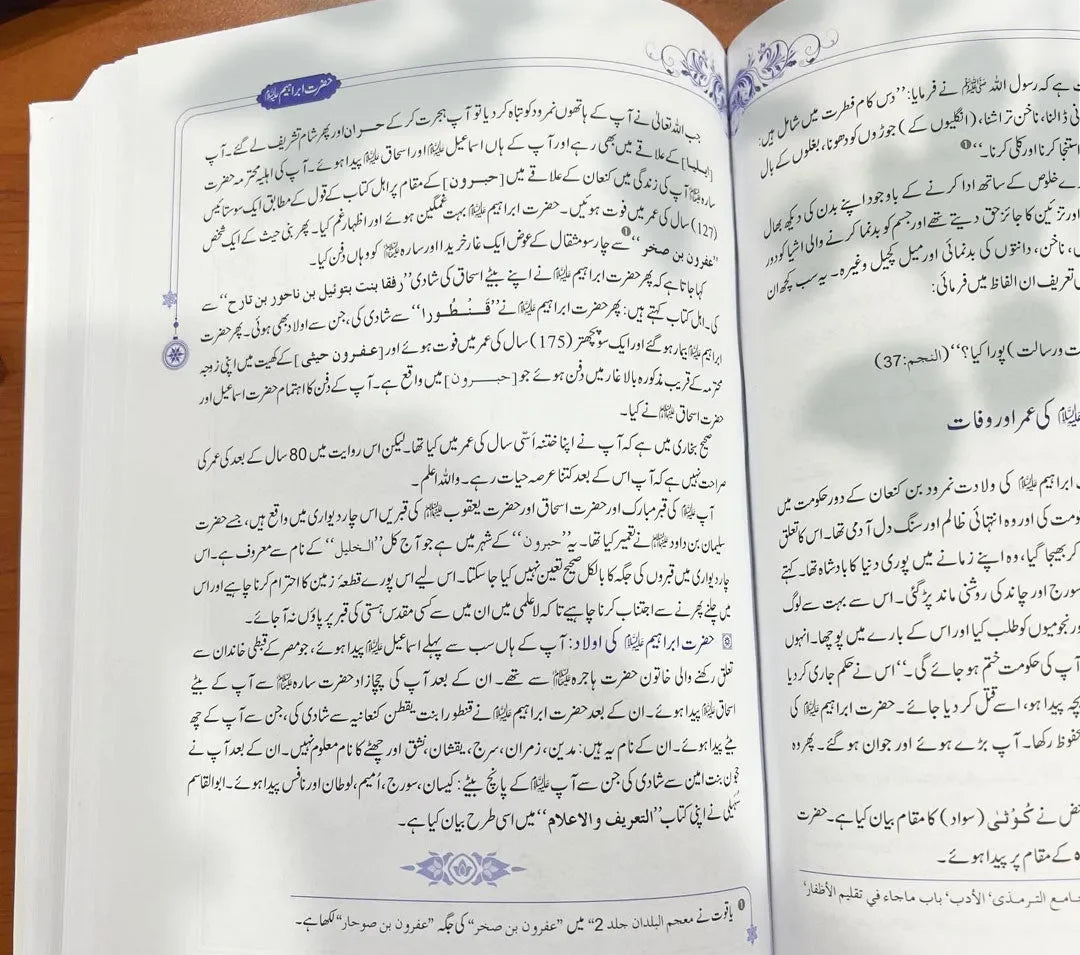 ت ہے کہ رسول اللہ ﷺ نے فرمایا: ”دس کام فطرت میں شامل ہیں:
نی ڈالنا، ناخن تراشنا، (انگلیوں کے) جوڑوں کو دھونا، بغلوں کے بال
استنجا کرنا اور کلی کرنا۔“ ❶
ے خلوص کے ساتھ ادا کرنے کے باوجود اپنے بدن کی دیکھ بھال
اور تزئین کا جائز حق دیتے تھے اور جسم کو بدنما کرنے والی اشیا کو دور
ں، ناخن، دانتوں کی بدنمائی اور میل کچیل وغیرہ۔ یہ سب کچھ ان
تعریف ان الفاظ میں فرمائی:
ت و رسالت) پورا کیا؟“ (النجم:37)
علیہ السلام کی عمر اور وفات
ابراہیم علیہ السلام کی ولادت نمرود بن کنعان کے دور حکومت میں
ومت کی اور وہ انتہائی ظالم اور سنگ دل آدمی تھا۔ اس کا تعلق
کر بھیجا گیا، وہ اپنے زمانے میں پوری دنیا کا بادشاہ تھا۔ کہتے
سورج اور چاند کی روشنی ماند پڑ گئی۔ اس سے بہت سے لوگ
ور نجومیوں کو طلب کیا اور اس کے بارے میں پوچھا۔ انہوں
آپ کی حکومت ختم ہو جائے گی۔“ اس نے حکم جاری کر دیا
بچہ پیدا ہو، اسے قتل کر دیا جائے۔ حضرت ابراہیم علیہ السلام کی
محفوظ رکھا۔ آپ بڑے ہوئے اور جوان ہو گئے۔ پھر وہ
بعض نے کُوثٰی (سواد) کا مقام بیان کیا ہے۔ حضرت
ہ کے مقام پر پیدا ہوئے۔
جامع الترمذی‘ الأدب‘ باب ماجاء في تقليم الأظفار‘
حضرت ابراہیم علیہ السلام
جب اللہ تعالیٰ نے آپ کے ہاتھوں نمرود کو تباہ کر دیا تو آپ ہجرت کر کے حران اور پھر شام تشریف لے گئے۔ آپ
[ایلیا] کے علاقے میں بھی رہے اور آپ کے ہاں اسماعیل علیہ السلام اور اسحاق علیہ السلام پیدا ہوئے۔ آپ کی اہلیہ محترمہ حضرت
سارہ علیہا السلام آپ کی زندگی میں کنعان کے علاقے میں [حبرون] کے مقام پر اہل کتاب کے قول کے مطابق ایک سو ستائیس
(127) سال کی عمر میں فوت ہوئیں۔ حضرت ابراہیم علیہ السلام بہت غمگین ہوئے اور اظہار غم کیا۔ پھر بنی حیث کے ایک شخص
”عفرون بن صخر“ ❶ سے چار سو مثقال کے عوض ایک غار خریدا اور سارہ علیہا السلام کو وہاں دفن کیا۔
کہا جاتا ہے کہ پھر حضرت ابراہیم علیہ السلام نے اپنے بیٹے اسحاق کی شادی ”رفقا بنت بتوئیل بن ناحور بن تارح“ سے
کی۔ اہل کتاب کہتے ہیں: پھر حضرت ابراہیم علیہ السلام نے ”قَنْطُورا“ سے شادی کی، جن سے اولاد بھی ہوئی۔ پھر حضرت
ابراہیم علیہ السلام بیمار ہو گئے اور ایک سو پچھتر (175) سال کی عمر میں فوت ہوئے اور [عفرون حیثی] کے کھیت میں اپنی زوجہ
محترمہ کے قریب مذکورہ بالا غار میں دفن ہوئے جو [حبرون] میں واقع ہے۔ آپ کے دفن کا اہتمام حضرت اسماعیل اور
حضرت اسحاق علیہما السلام نے کیا۔
صحیح بخاری میں ہے کہ آپ نے اپنا ختنہ اسّی سال کی عمر میں کیا تھا۔ لیکن اس روایت میں 80 سال کے بعد کی عمر کی
صراحت نہیں ہے کہ آپ اس کے بعد کتنا عرصہ حیات رہے۔ واللہ اعلم۔
آپ علیہ السلام کی قبر مبارک اور حضرت اسحاق اور حضرت یعقوب علیہم السلام کی قبریں اس چار دیواری میں واقع ہیں، جسے حضرت
سلیمان بن داود علیہ السلام نے تعمیر کیا تھا۔ یہ ”حبرون“ کے شہر میں ہے جو آج کل ”الخلیل“ کے نام سے معروف ہے۔ اس
چار دیواری میں قبروں کی جگہ کا بالکل صحیح تعین نہیں کیا جا سکتا۔ اس لیے اس پورے قطعۂ زمین کا احترام کرنا چاہیے اور اس
میں چلنے پھرنے سے اجتناب کرنا چاہیے تاکہ لاعلمی میں ان میں سے کسی مقدس ہستی کی قبر پر پاؤں نہ آ جائے۔
حضرت ابراہیم علیہ السلام کی اولاد: آپ کے ہاں سب سے پہلے اسماعیل علیہ السلام پیدا ہوئے، جو مصر کے قبطی خاندان سے
تعلق رکھنے والی خاتون حضرت ہاجرہ علیہا السلام سے تھے۔ ان کے بعد آپ کی چچازاد حضرت سارہ علیہا السلام سے آپ کے بیٹے
اسحاق علیہ السلام پیدا ہوئے۔ ان کے بعد حضرت ابراہیم علیہ السلام نے قنطورا بنت یقطن کنعانیہ سے شادی کی، جن سے آپ کے چھ
بیٹے پیدا ہوئے۔ ان کے نام یہ ہیں: مدین، زمران، سرج، یقشان، نشق اور چھٹے کا نام معلوم نہیں۔ ان کے بعد آپ نے
حجون بنت امین سے شادی کی جن سے آپ علیہ السلام کے پانچ بیٹے: کیسان، سورج، اُمیم، لوطان اور نافس پیدا ہوئے۔ ابو القاسم
سہیلی نے اپنی کتاب ”التعریف والاعلام“ میں اسی طرح بیان کیا ہے۔
❶ یاقوت نے معجم البلدان جلد 2“ میں ”عفرون بن صخر“ کی جگہ ”عفرون بن صوحار“ لکھا ہے۔